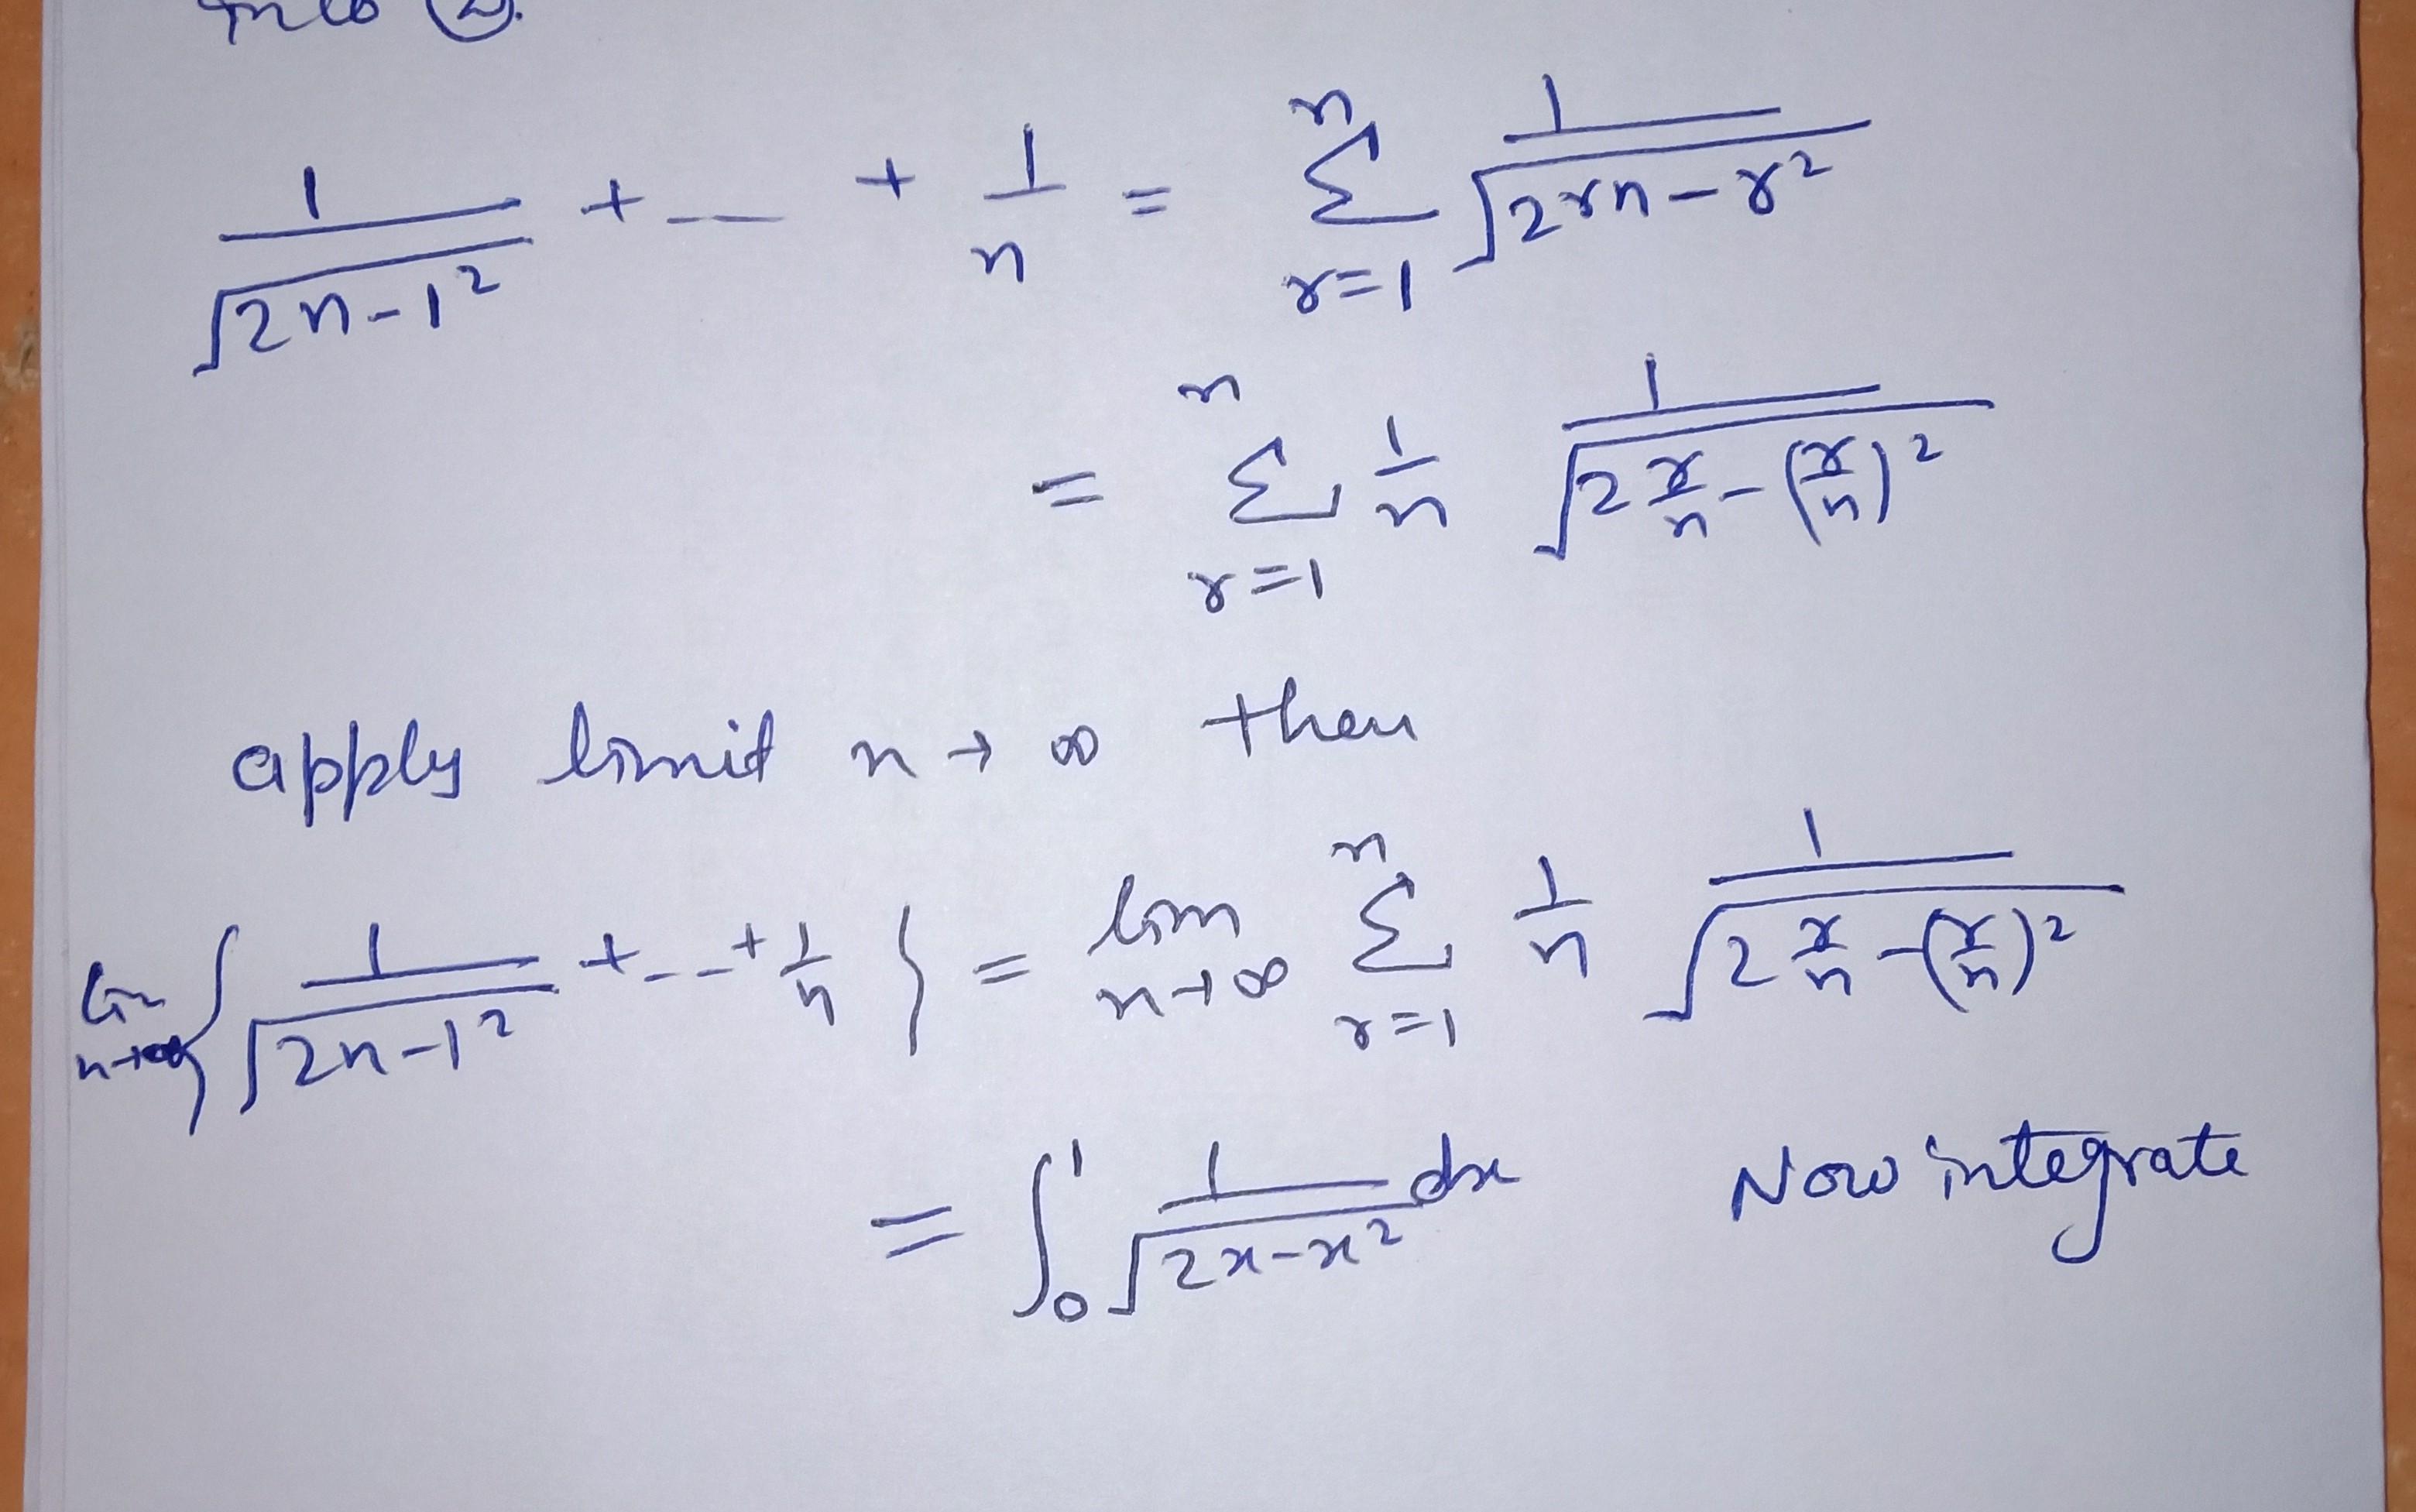 into (2).
1/√(2n-1²) + -- + 1/n = Σ_{r=1}^{n} 1/√(2rn-r²)
= Σ_{r=1}^{n} 1/n 1/√(2 r/n - (r/n)²)
apply limit n→∞ then
lim_{n→∞} { 1/√(2n-1²) + -- + 1/n } = lim_{n→∞} Σ_{r=1}^{n} 1/n 1/√(2 r/n - (r/n)²)
= ∫₀¹ 1/√(2x-x²) dx Now integrate